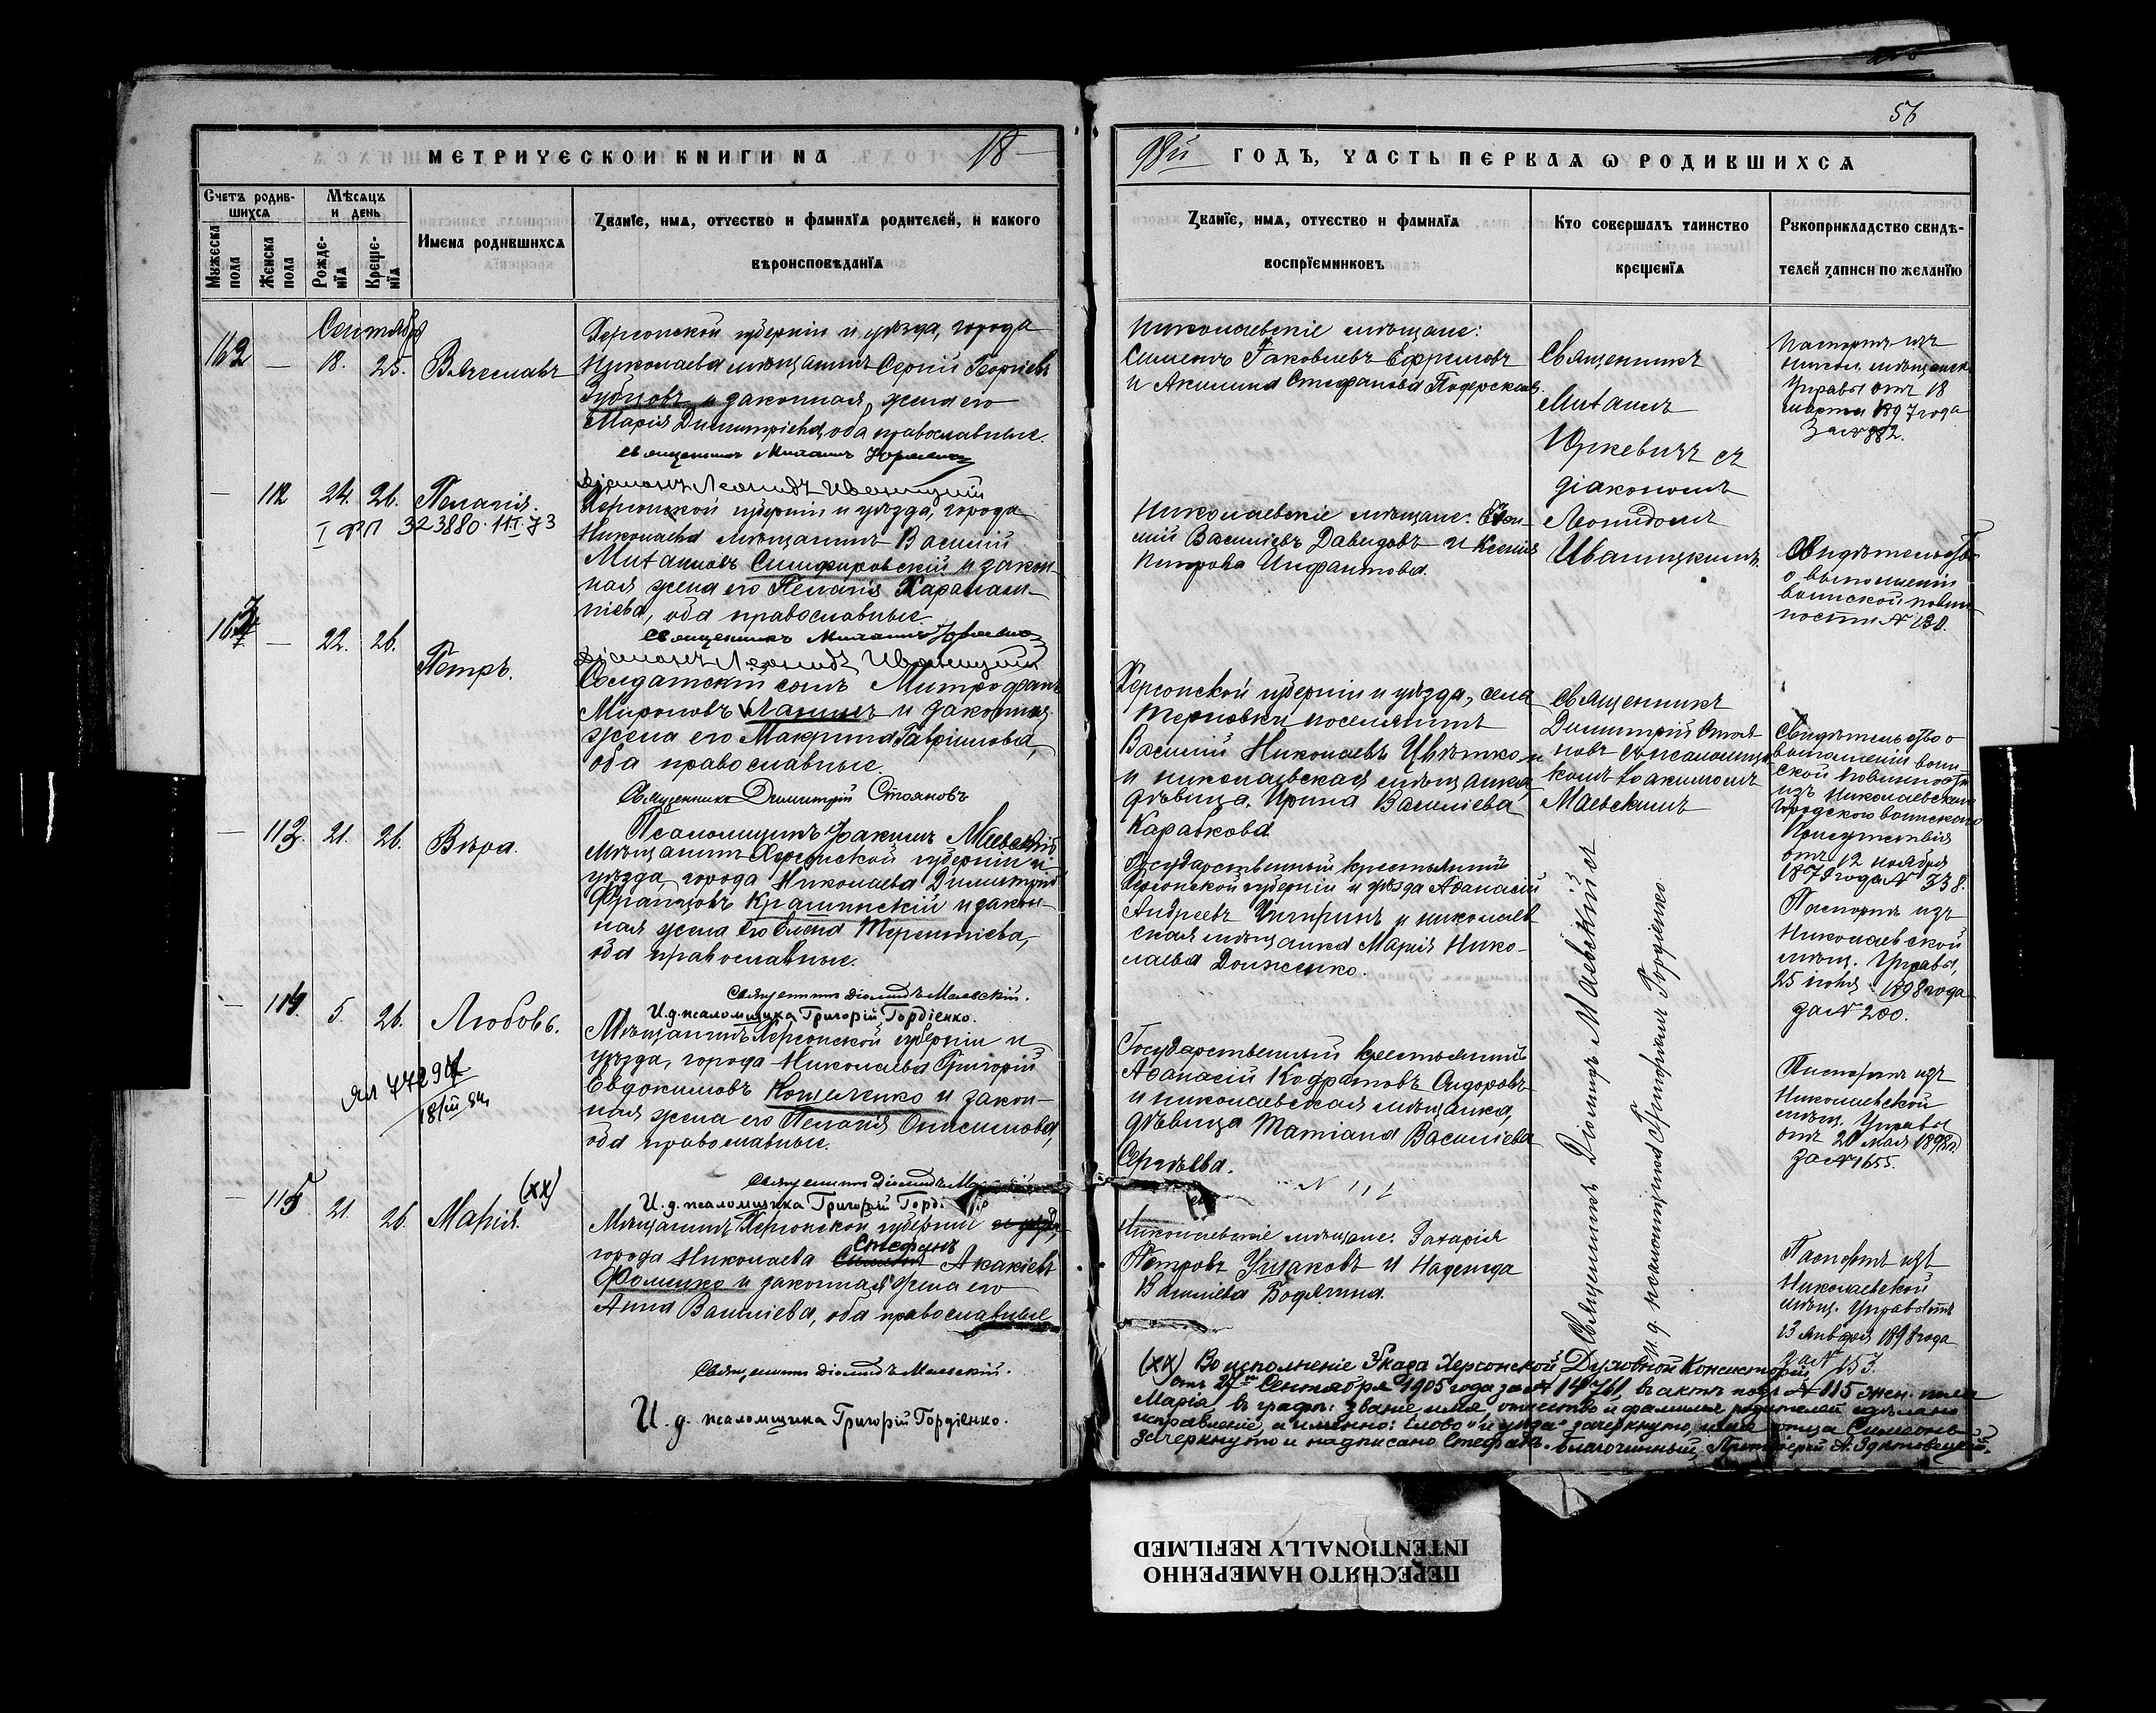 56
МЕТРИЧЕСКОЙ КНИГИ НА 18
98й ГОДЪ, ЧАСТЬ ПЕРВАЯ Ѡ РОДИВШИХСЯ
Счетъ родившихся
Мужеска пола
Женска пола
Мѣсяцъ и день
Рожденїя
Крещенїя
Имена родившихся
Званїе, имя, отчество и фамилїя родителей, и какого
вѣроисповѣданїя
Званїе, имя, отчество и фамилїя
воспрїемниковъ
Кто совершалъ таинство
крещенїя
Рукоприкладство свидѣ-
телей записи по желанїю
Сентябрь
162 — 18. 25. Вячеславъ
Херсонской губерніи и уѣзда, города
Николаева мѣщанинъ Сергій Георгіевъ
Зубцовъ и законная жена его
Марія Димитріева, оба православные.
священникъ Михаилъ Юркевичъ
діаконъ Леонидъ Иваницкій
Николаевскіе мѣщане:
Симеонъ Іаковлевъ Ефремовъ
и Акилина Стефанова
Священникъ
Михаилъ
Юркевичъ съ
діакономъ
Леонидомъ
Иваницкимъ
Паспортъ изъ
Никол. мѣщанск.
Управы отъ 18
марта 1897 года
За № 882.
— 112 24. 26. Пелагія.
I ФП 323880. 11 I. 73
Херсонской губерніи и уѣзда, города
Николаева мѣщанинъ Василій
Михаиловъ Симфировскій и закон-
ная жена его Пелагія Харалам-
піева, оба православные
священникъ Михаилъ Юркевичъ
діаконъ Леонидъ Иваницкій
Николаевскіе мѣщане:
Василіевъ Давидовъ и Ксенія
Петрова Инфантова.
Свидѣтельство
о выполненіи
воинской повин-
ности № 130.
163 — 22. 26. Петръ.
Солдатскій сынъ Митрофанъ
Мироновъ Лапинъ и законная
жена его Макрина Гавріилова,
оба православные.
Священникъ Димитрій Стояновъ
Псаломщикъ Іоакимъ Маевскій
Херсонской губерніи и уѣзда, села
Терновки поселянинъ
Василій Николаевъ Цвѣтко
и николаевская мѣщанка,
дѣвица, Ирина Василіева
Каравкова.
священникъ
Димитрій Стоя-
новъ съ псаломщи-
комъ Іоакимомъ
Маевскимъ
Свидѣтельство о
выполненіи воин-
ской повинности
изъ Николаевскаго
городского воинскаго
Присутствія
отъ 12 ноября
1879 года № 338.
— 113. 21. 26. Вѣра.
Мѣщанинъ Херсонской губерніи и
уѣзда, города Николаева Димитрій
Францовъ Крашинскій и закон-
ная жена его Елена Терентіева,
оба православные.
Священникъ Діомидъ Маевскій.
И. д. псаломщика Григорій Гордіенко.
Государственный крестьянинъ
Херсонской губерніи и уѣзда Аѳанасій
Андреевъ Чигиринъ и николаев-
ская мѣщанка Марія Нико-
лаева Долженко.
Священникъ Діомидъ Маевскій съ
и. д. псаломщика Григоріемъ Гордіенко.
Паспортъ изъ
Николаевской
мѣщ. Управы,
25 іюня 1898 года
за № 200.
— 114. 5. 26. Любовь.
Мѣщанинъ Херсонской губерніи и
уѣзда, города Николаева Григорій
Евдокимовъ Кошеленко и закон-
ная жена его Пелагія Онисимова,
оба православные.
Священникъ Діомидъ Ма
И. д. псаломщика Григорій Горд.
Государственный крестьянинъ
Аѳанасій Кодратовъ Сидоровъ
и николаевская мѣщанка,
дѣвица Татіана Василіева
Сергѣева.
Паспортъ изъ
Николаевской
мѣщ. Управы
отъ 20 мая 1898 г.
за № 1655.
— 115. 21. 26. Марія. (хх)
Мѣщанинъ Херсонской губерніи и уѣзда,
Стефанъ
города Николаева Симеонъ Акакіевъ
Фоменко и законная жена его
Анна Василіева, оба православные
Священникъ Діомидъ Маевскій.
И. д. псаломщика Григорій Гордіенко.
Николаевскіе мѣщане: Захарія
Петровъ Ушаковъ и Надежда
Василіева Бодягина.
Паспортъ изъ
Николаевской
мѣщ. Управы отъ
13 января 1898 года
за № 153.
(хх) Во исполненіе Указа Херсонской Духовной Консисторіи
отъ 27го Сентября 1905 года за № 14761, въ актѣ подъ № 115 жен. пола
Марія, въ графѣ: званіе, имя, отчество и фамилія родителей сдѣлано
исправленіе, а именно: слово "и уѣзда" зачеркнуто, имя отца Симеонъ
зачеркнуто и надписано Стефанъ. Благочинный, Протоіерей А.
ПЕРЕСНЯТО НАМЕРЕННО
INTENTIONALLY REFILMED